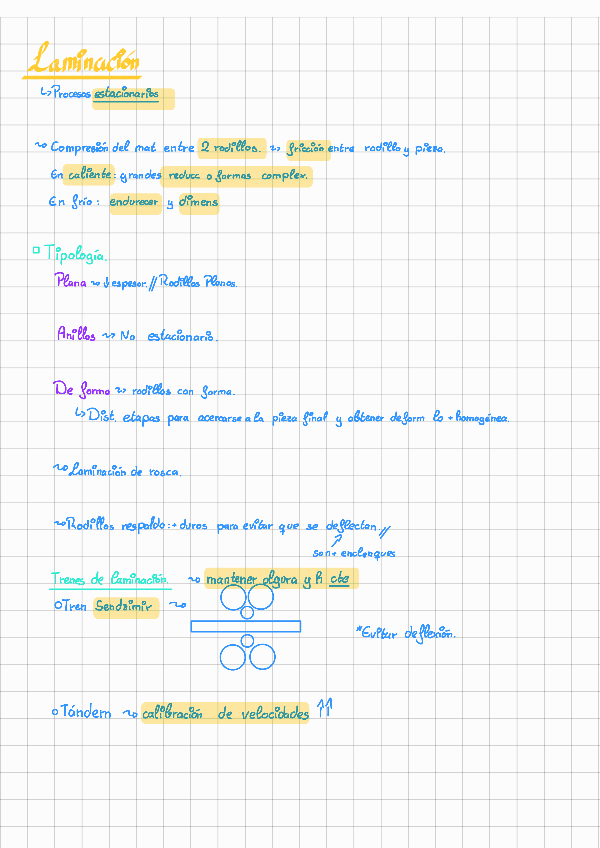 Laminación
↳ Procesos estacionarios
~> Compresión del mat entre 2 rodillos. ~> fricción entre rodillo y pieza.
En caliente: grandes reducc o formas complex.
En frío: endurecer y dimens
Tipología.
Plana ~> ↓ espesor // Rodillos Planos.
Anillos ~> No estacionario.
De forma ~> rodillos con forma.
↳ Dist. etapas para acercarse a la pieza final y obtener deform lo + homogénea.
~> Laminación de rosca.
~> Rodillos respaldo: + duros para evitar que se deflecten //
son +
Trenes de laminación. ~> mantener y h cte
Tren Sendzimir ~>
*Evitar deflexión.
Tándem ~> calibración de velocidades ↑↑